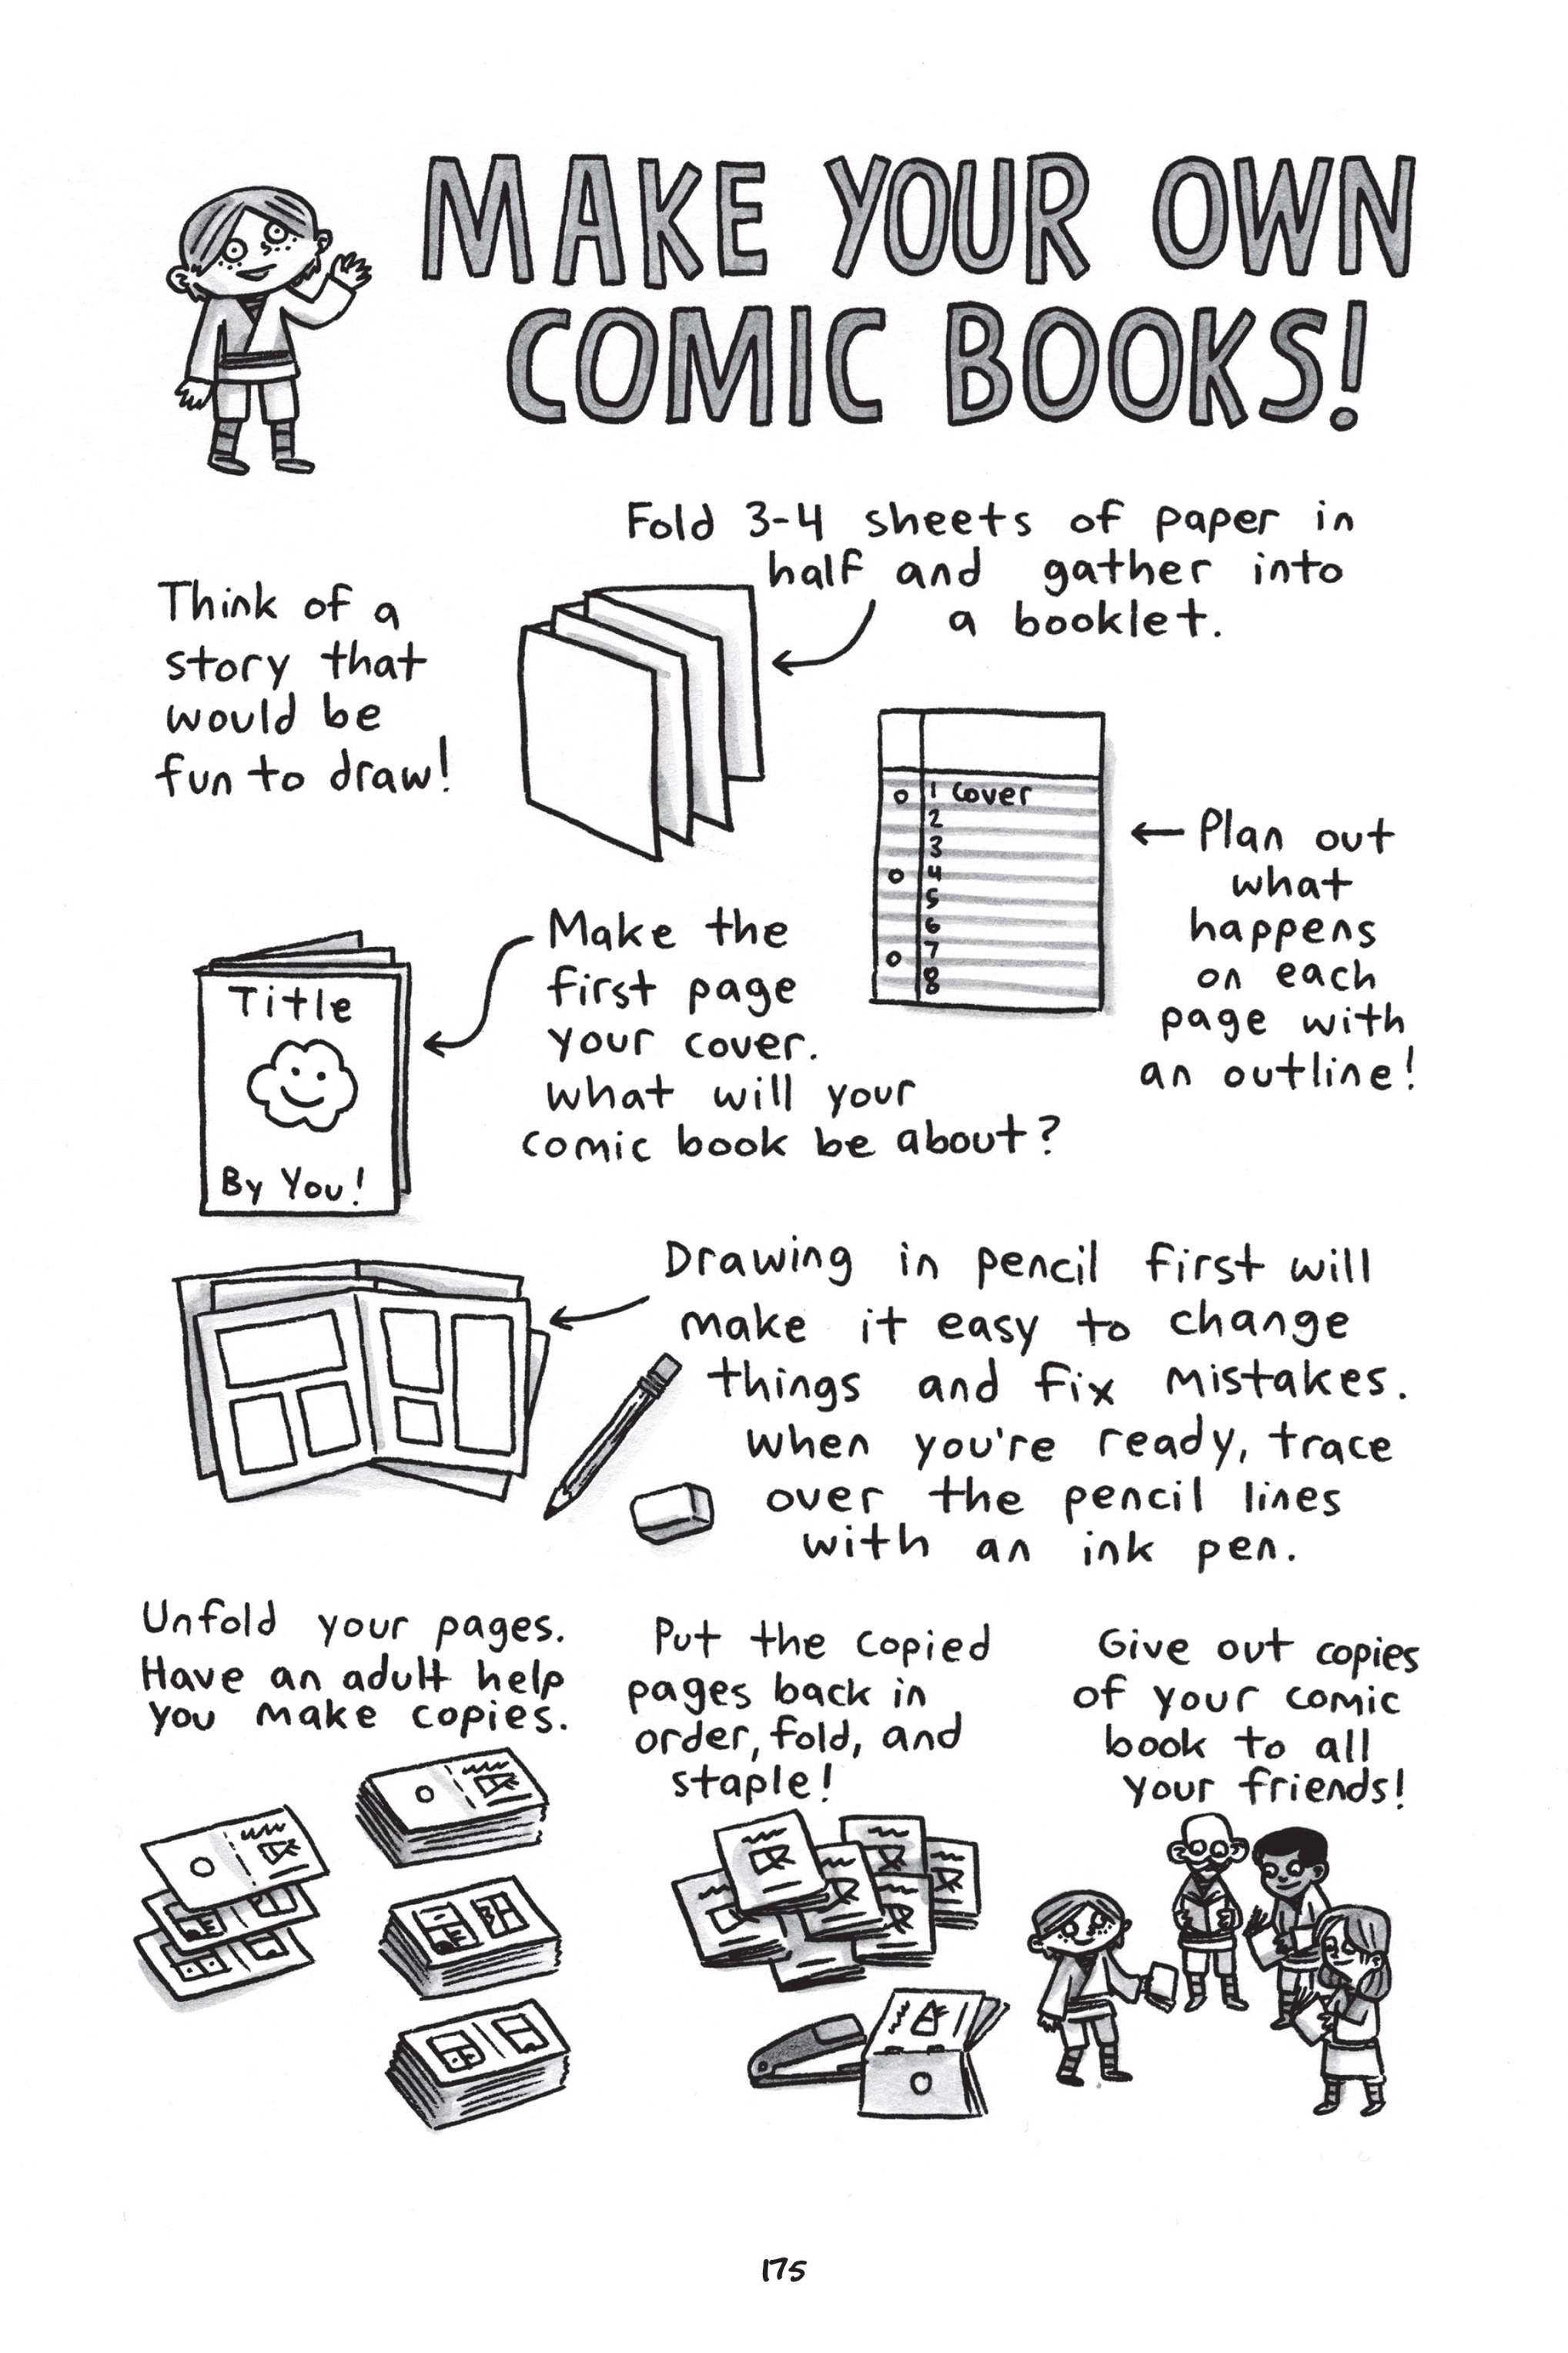 MAKE YOUR OWN
COMIC BOOKS!
Think of a
story that
would be
fun to draw!
Fold 3-4 sheets of paper in
half and gather into
a booklet.
1 Cover
2
3
4
5
6
7
8
Plan out
what
happens
on each
page with
an outline!
Title
By You!
Make the
first page
your cover.
What will your
comic book be about?
Drawing in pencil first will
make it easy to change
things and fix mistakes.
When you're ready, trace
over the pencil lines
with an ink pen.
Unfold your pages.
Have an adult help
you make copies.
Put the copied
pages back in
order, fold, and
staple!
Give out copies
of your comic
book to all
your friends!
175